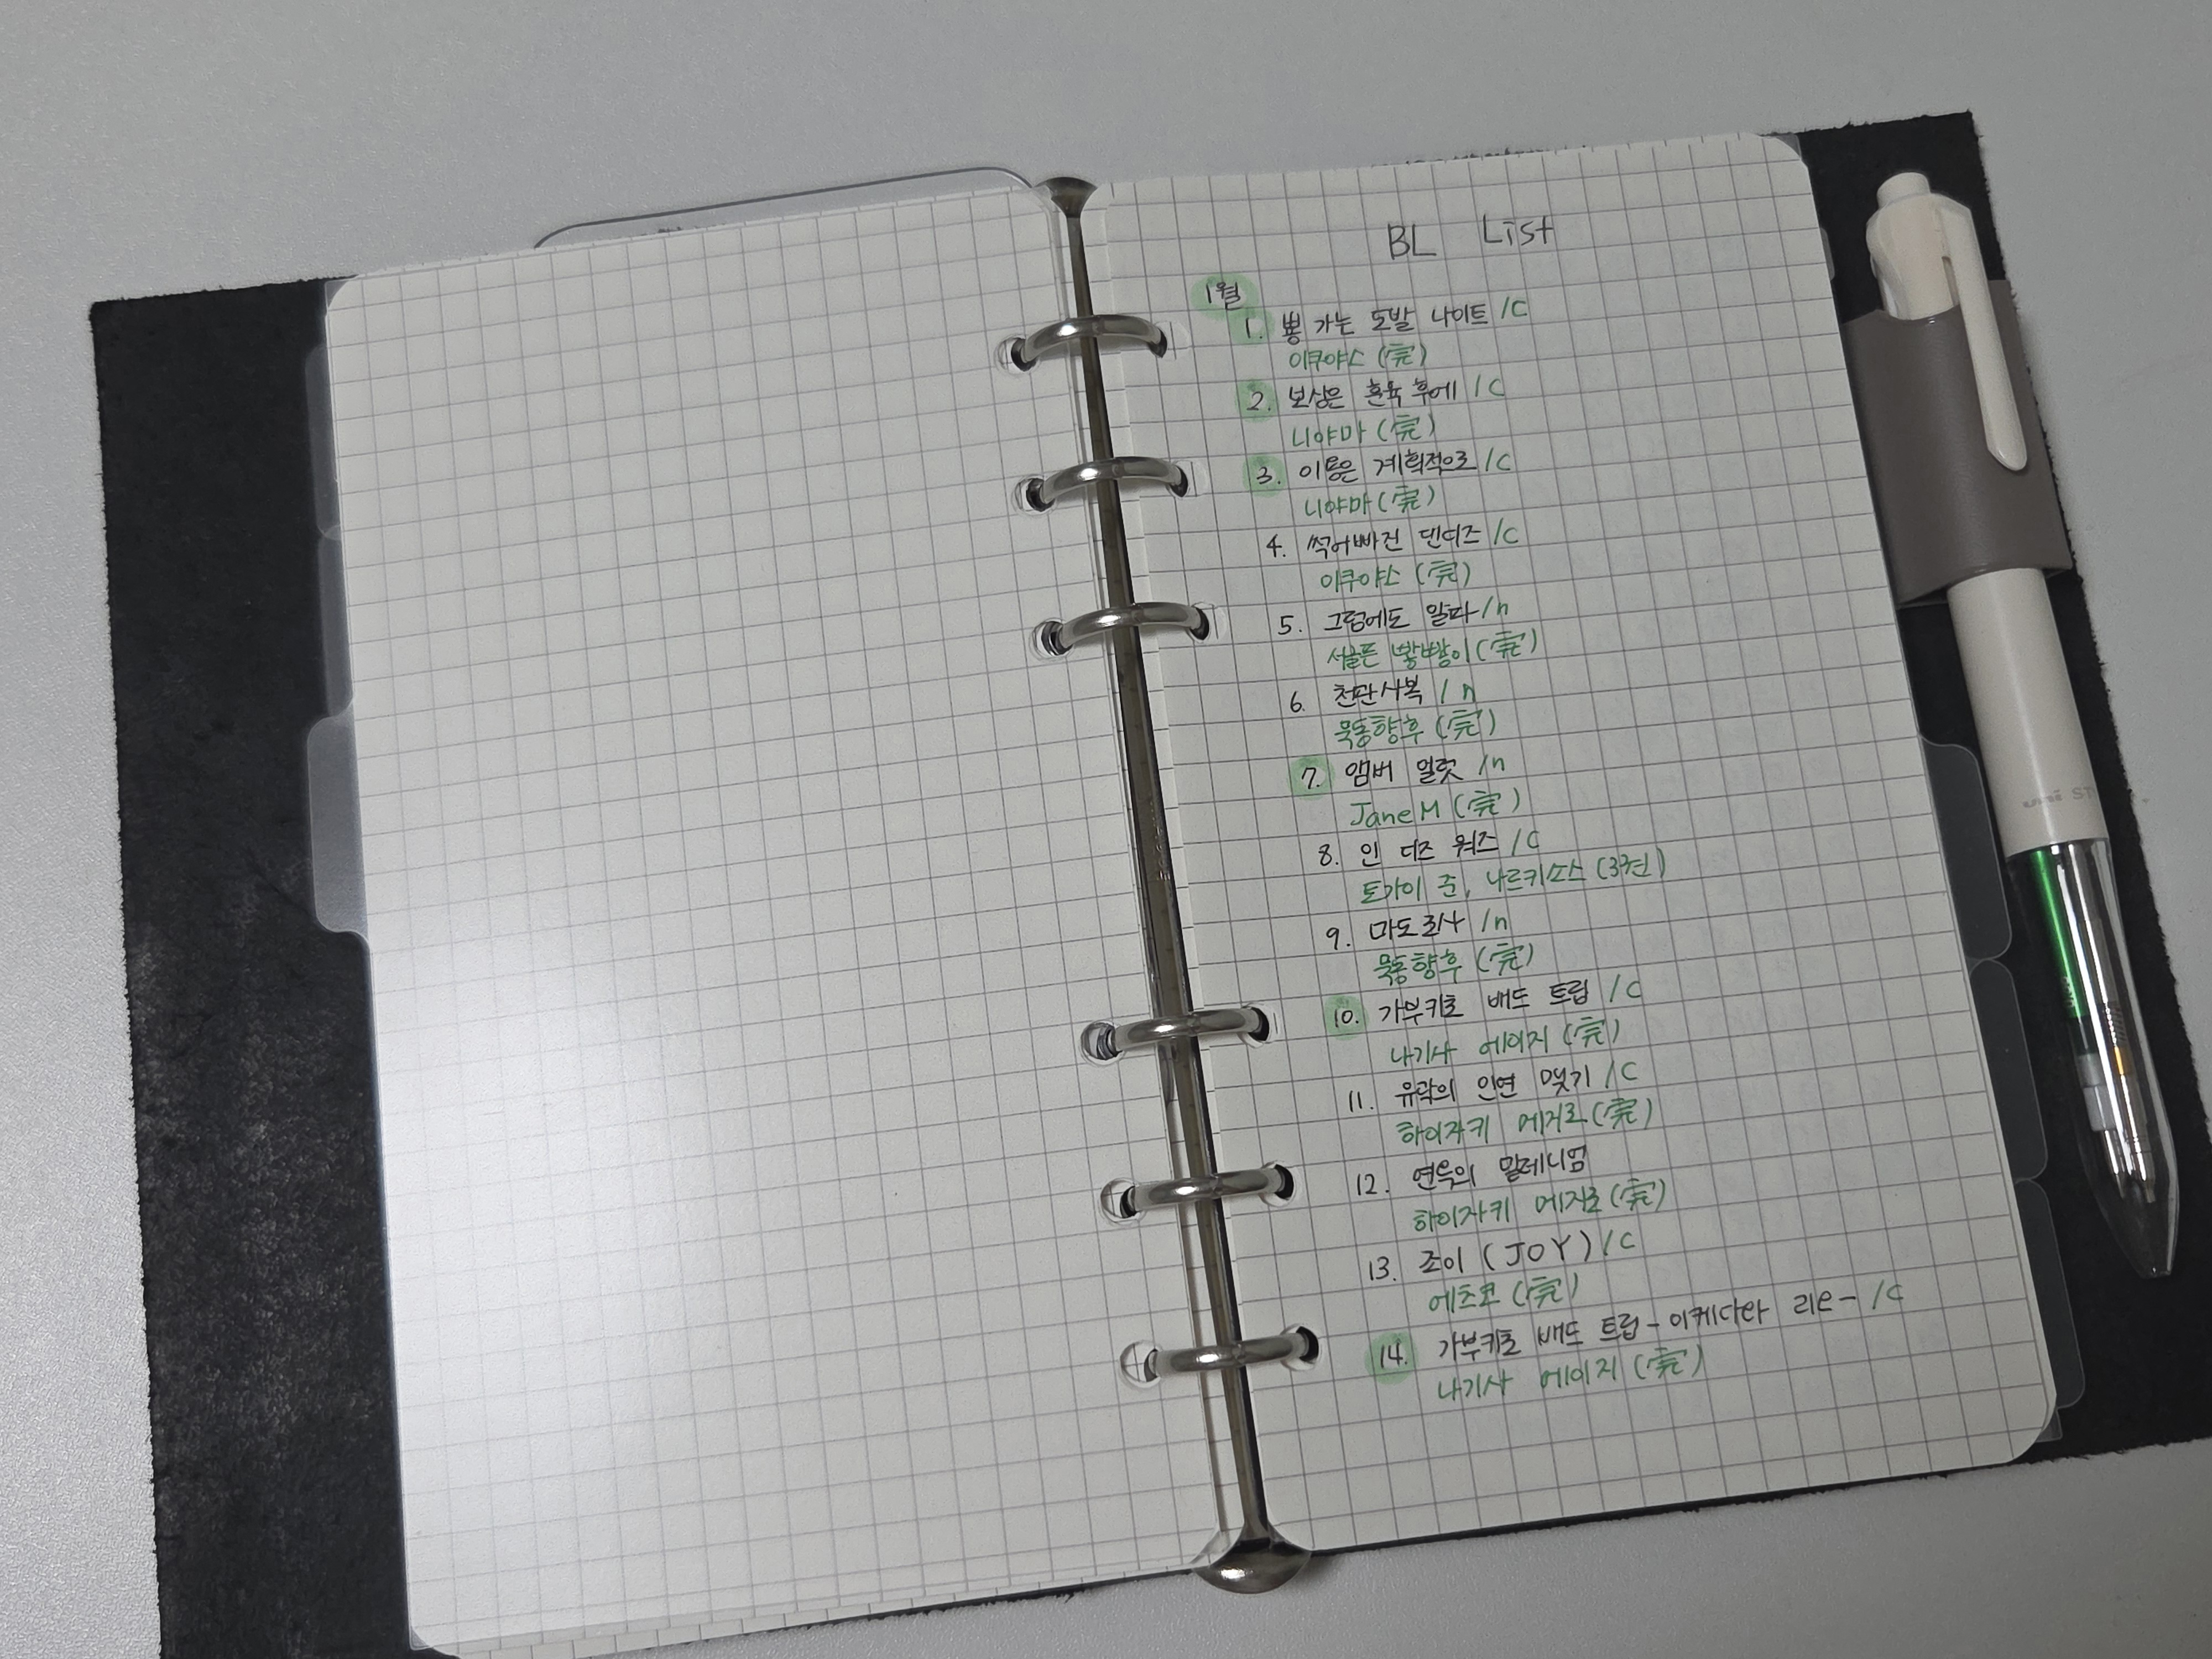 BL List
1월
1. 뿅 가는 도발 나이트 /C
이쿠야스 (完)
2. 보상은 훈육 후에 /C
니야마 (完)
3. 이용은 계획적으로 /C
니야마 (完)
4. 썩어빠진 댄디즈 /C
이쿠야스 (完)
5. 그럼에도 알파 /n
서글픈 빵빵이 (完)
6. 천관사복 /n
묵동향후 (完)
7. 앰버 얼럿 /n
Jane M (完)
8. 인 디즈 워즈 /C
토가이 준, 나르키소스 (3권)
9. 마도조사 /n
묵동향후 (完)
10. 가부키초 배드 트립 /C
나기사 에이지 (完)
11. 유곽의 인연 맺기 /C
하이자키 메지로 (完)
12. 연옥의 밀레니엄
하이자키 메지로 (完)
13. 조이 (JOY) /C
에츠코 (完)
14. 가부키초 배드 트립 - 이케다라 리e - /C
나기사 에이지 (完)
uni